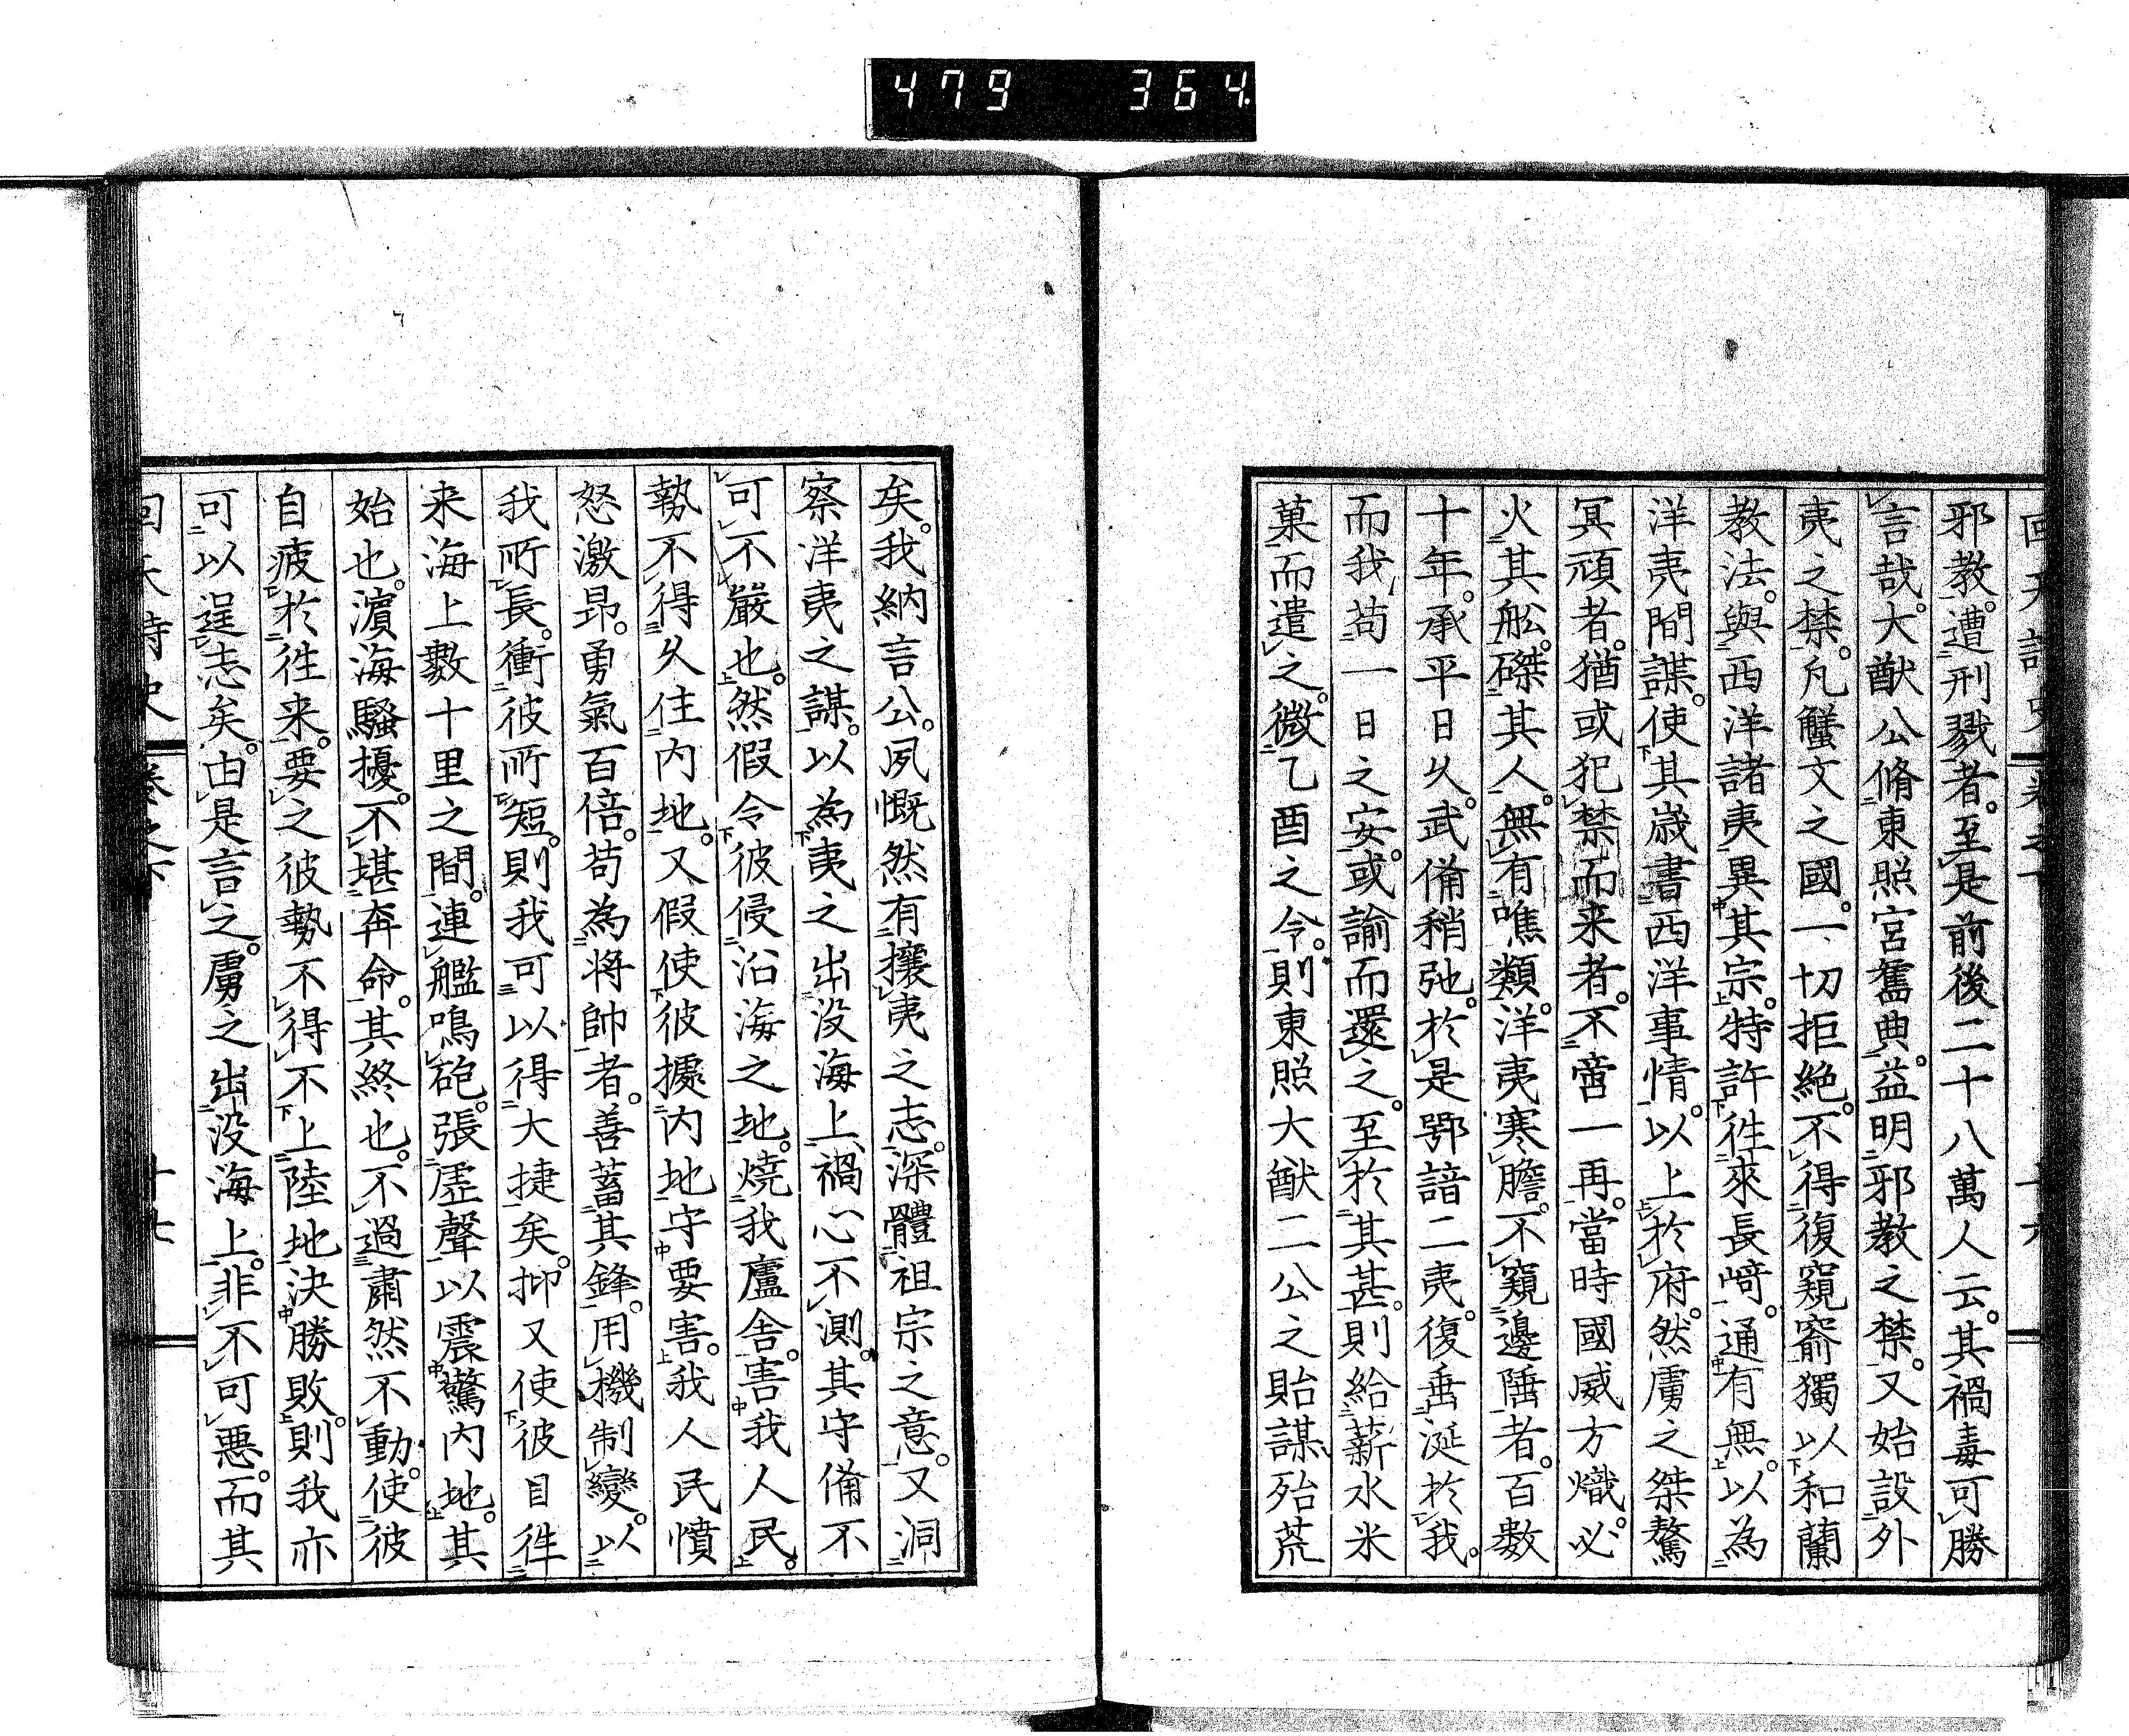 479 364.
邪教。遭刑戮者。至是前後二十八萬人云。其禍毒可勝
言哉。大猷公脩東照宮舊典。益明邪教之禁。又始設外
夷之禁。凡蟹文之國。一切拒絶。不得復窺窬。獨以和蘭
教法。與西洋諸夷異其宗。特許往來長﨑。通有無。以為
洋夷間諜。使其歳書西洋事情。以上於府。然虜之桀驁
冥頑者。猶或犯禁而来者。不啻一再。當時國威方熾。必
火其舩。磔其人。無有噍類。洋夷寒膽。不窺邊陲者。百數
十年。承平日久。武備稍弛。於是鄂諳二夷。復垂涎於我。
而我苟一日之安。或諭而還之。至於其甚。則給薪水米
菓而遣之。微乙酉之令。則東照大猷二公之貽謀殆荒
矣。我納言公。夙慨然有攘夷之志。深體祖宗之意。又洞
察洋夷之謀。以為夷之出没海上、禍心不測。其守備不
可不嚴也。然假令彼侵沿海之地。燒我廬舍。害我人民。
勢不得久住内地。又假使彼據内地守要害。我人民憤
怒激昂。勇氣百倍。苟為将帥者。善蓄其鋒。用機制變。以
我所長。衝彼所短。則我可以得大捷矣。抑又使彼日往
来海上數十里之間。連艦鳴砲。張虚聲以震驚内地。其
始也。濵海騒擾。不堪奔命。其終也。不過肅然不動。使彼
自疲於往来。要之彼勢不得不上陸地決勝敗。則我亦
可以逞志矣。由是言之。虜之出没海上。非不可悪。而其
回天詩史 卷之下 十七